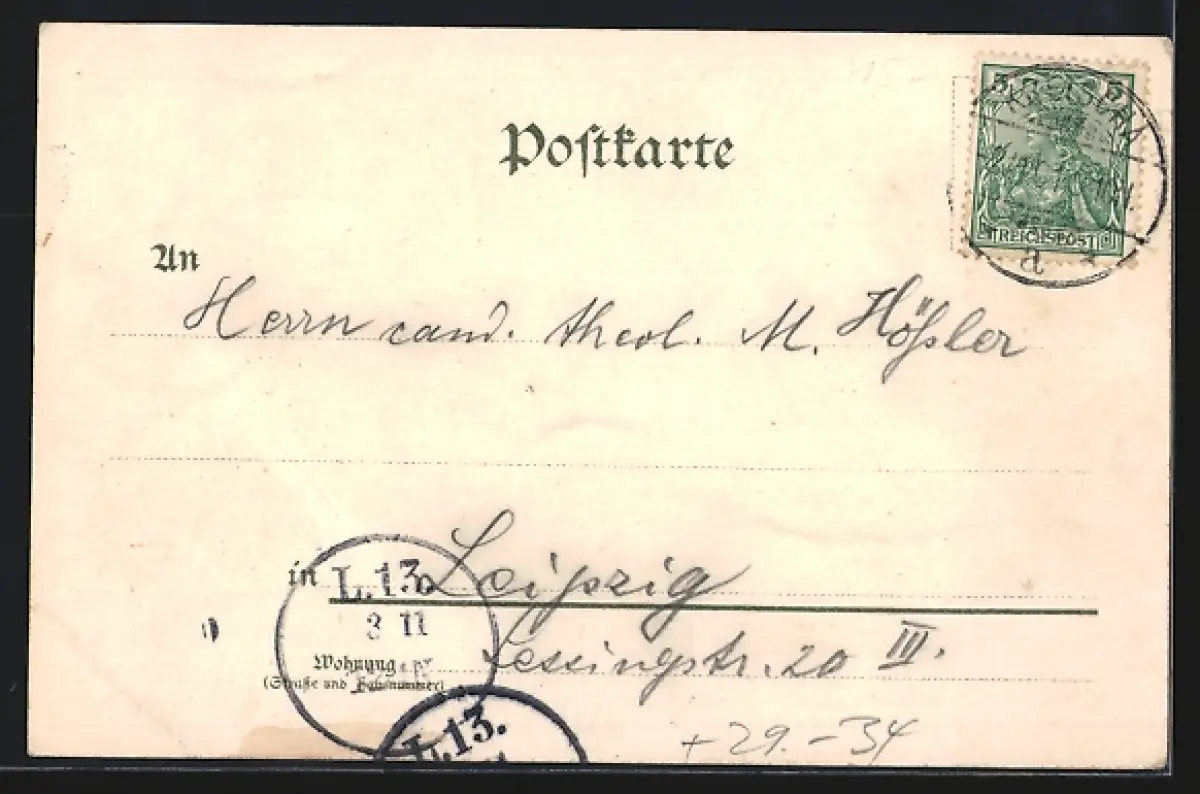 Postkarte
5 5
REICHSPOST
An
Herrn cand. theol. M. Hößler
in Leipzig
L. 13.
3 11
Wohnung
(Straße und Hausnummer)
Lessingstr. 20 III.
L 13.
+ 29. - 34